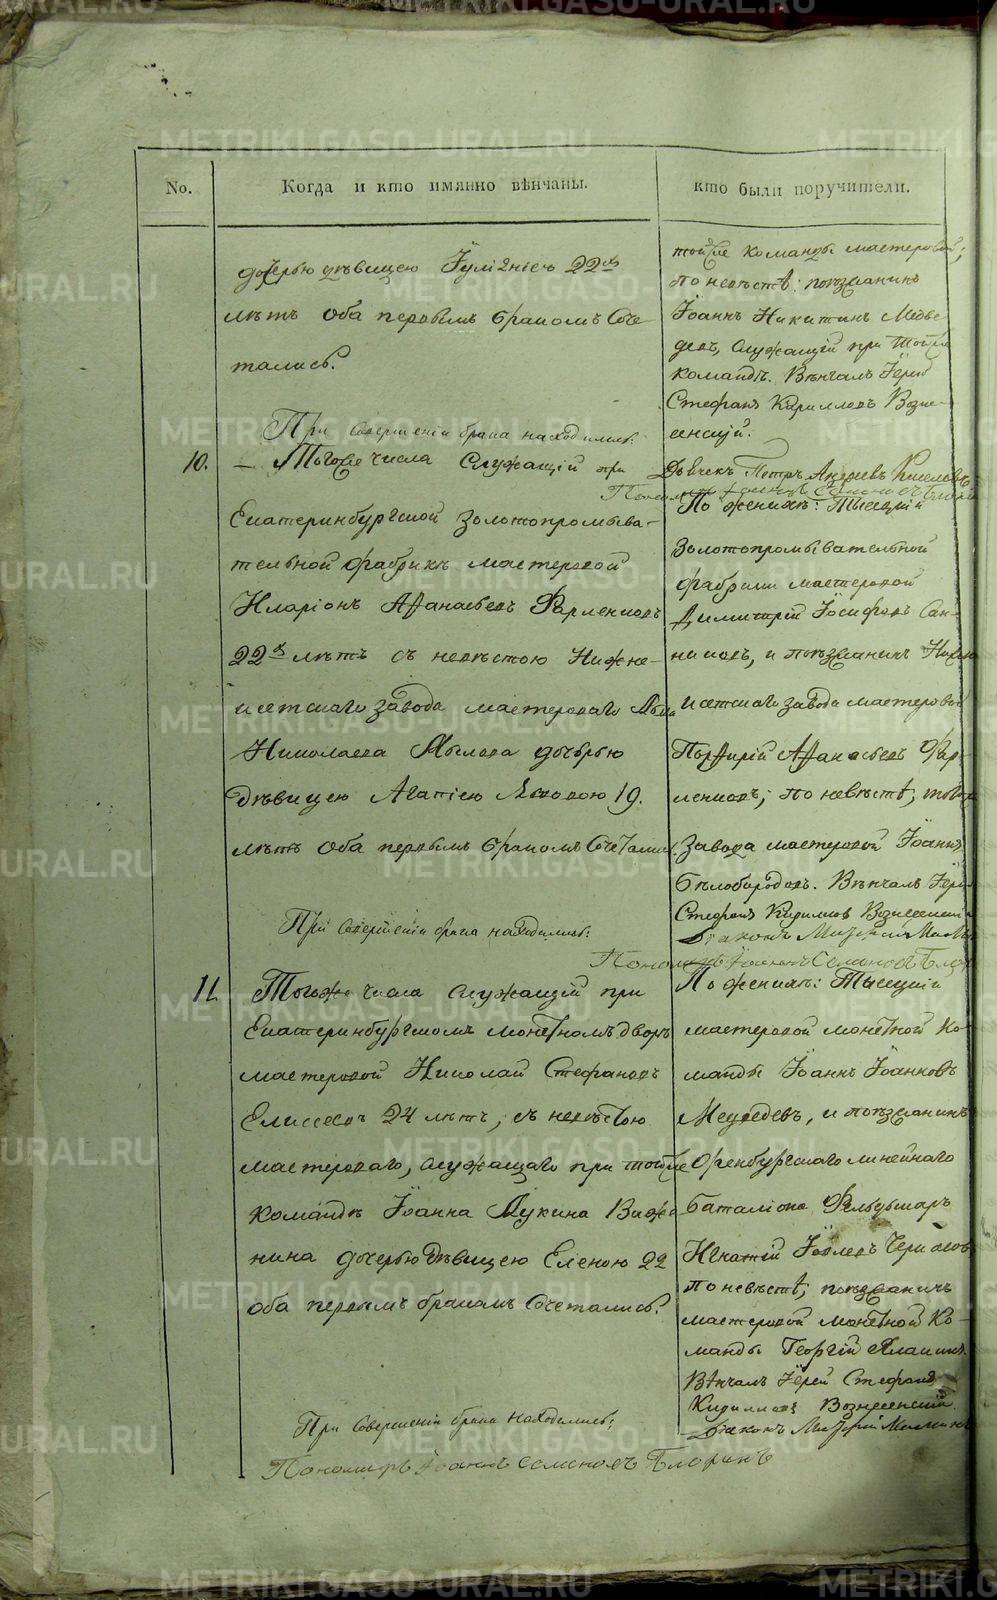 No.
Когда и кто имянно вѣнчаны.
кто были поручители.
дочерью дѣвицею Іуліаніею 22хъ
лѣтъ оба первымъ бракомъ соче-
тались.
При совершеніи брака находились:
тойже команды мастеровой;
по невѣстѣ: поѣзжанинъ
Іоаннъ Никитинъ Медве-
девъ, служащій при тойже
командѣ. Вѣнчалъ Іерей
Стефанъ Кирилловъ Возне-
сенскій.
Дьячекъ Петръ Андреевъ
Пономарь Іоаннъ Семеновъ
10.
Тогоже числа служащій при
Екатеринбургской золотопромыва-
тельной фабрикѣ мастеровой
Иларіонъ Афанасьевъ
22хъ лѣтъ съ невѣстою Нижне-
исетскаго завода мастероваго
Николаева дочерью
дѣвицею Агапіею 19.
лѣтъ оба первымъ бракомъ сочетались.
При совершеніи брака находились:
По женихѣ: тысяцкій
золотопромывательной
фабрики мастеровой
Димитрій Іосифовъ Сан-
никовъ, и поѣзжанинъ Нижне
исетскаго завода мастеровой
Порфирій Афанасьевъ
по невѣстѣ, тогоже
завода мастеровой Іоаннъ
Бѣлобородовъ. Вѣнчалъ Іерей
Стефанъ Кирилловъ Вознесенскій
Діаконъ
Пономарь Іоаннъ Семеновъ
11.
Тогоже числа служащій при
Екатеринбургскомъ монетномъ дворѣ
мастеровой Николай Стефановъ
Елисеевъ 24 лѣтъ, съ невѣстою
мастероваго, служащаго при тойже
командѣ Іоанна Лукина
нина дочерью дѣвицею Еленою 22
оба первымъ бракомъ сочетались.
При совершеніи брака находились:
Пономарь Іоаннъ Семеновъ
По женихѣ: тысяцкій
мастеровой монетной ко-
манды Іоаннъ Іоанновъ
Медведевъ, и поѣзжанинъ
Оренбургскаго линейнаго
баталіона Фельдшаръ
Игнатій Іовлевъ
по невѣстѣ, поѣзжанинъ
мастеровой монетной ко-
манды Георгій
Вѣнчалъ Іерей Стефанъ
Кирилловъ Вознесенскій.
Діаконъ
METRIKI.GASO-URAL.RU